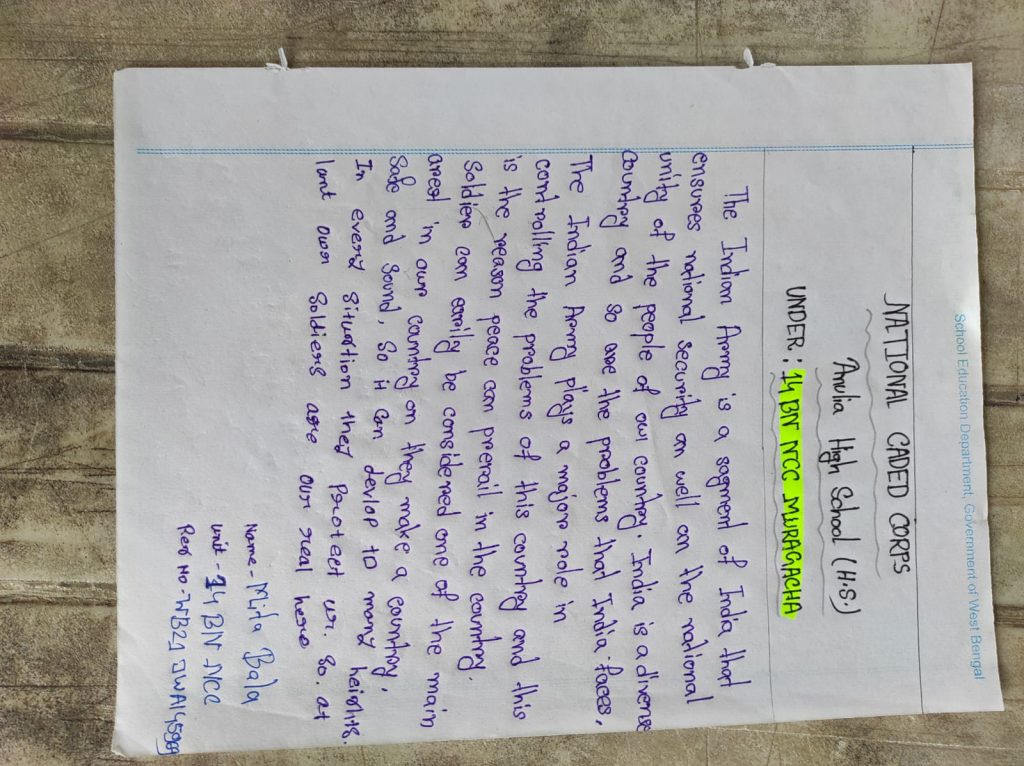 School Education Department, Government of West Bengal
NATIONAL CADED CORPS
Anulia High School (H.S.)
UNDER : 14 BN NCC MURAGACHA
The Indian Army is a segment of India that
ensures national security an well on the national
unity of the people of own country. India is a diverse
country and so are the problems that India faces.
The Indian Army plays a majore role in
controlling the problems of this country and this
is the reason peace can prevail in the country.
Soldier can easily be considered one of the main
arest in own country on they make a country,
safe and sound, so it can devlop to many heights.
In every situation they protect us. So. at
last own soldiers are our real heroe
Name - Mita Bala
Unit - 14 BN NCC
Reg No - WB21